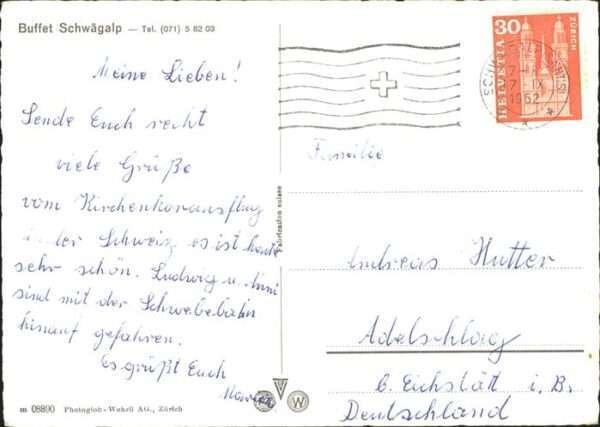 Buffet Schwägalp — Tel. (071) 5 82 03
Meine Lieben!
Sende Euch recht
viele Grüße
vom Kirchenkorausflug
in der Schweiz, es ist heute
sehr schön. Ludwig u.
sind mit der Schwebebahn
hinauf gefahren.
Es grüßt Euch
m 08890 Photoglob-Wehrli AG., Zürich
Fabrication suisse
30
HELVETIA
ZÜRICH
IX
1962
Familie
Andreas Hutter
Adelschlag
b. Eichstätt i. B.
Deutschland
W